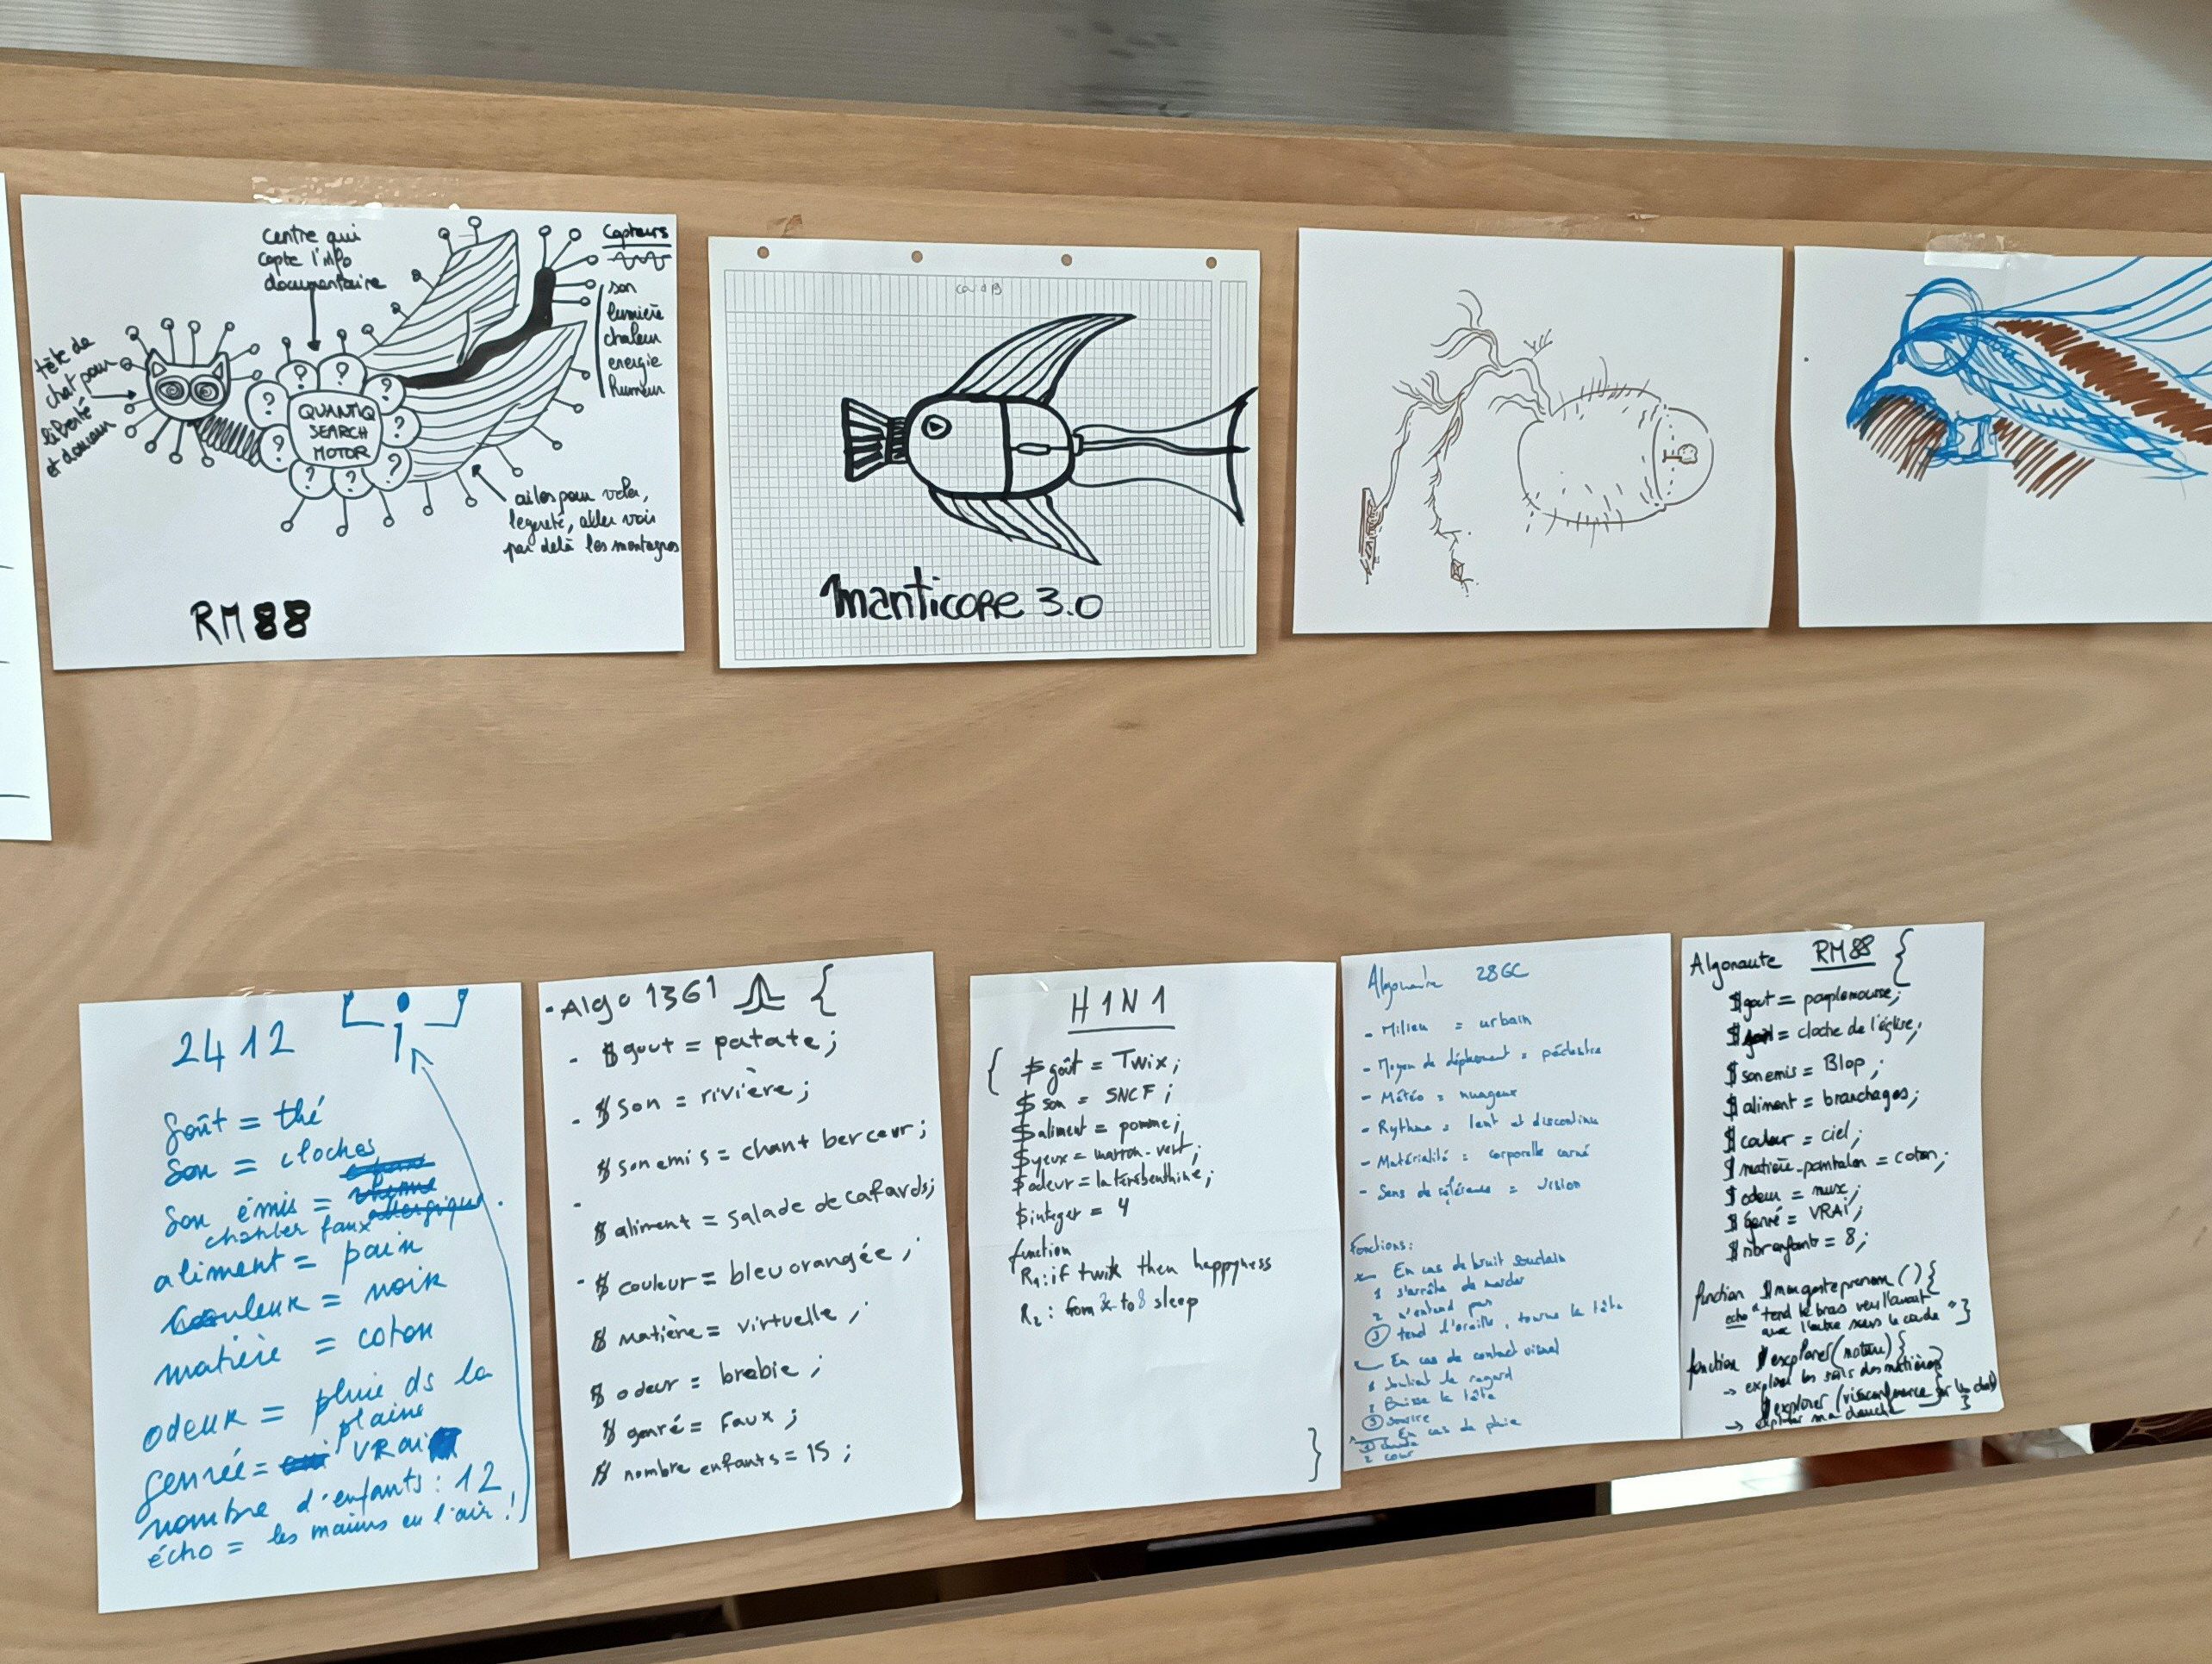 centre qui
capte l'info
documentaire
Capteurs
son
lumière
chaleur
energie
humeur
tête de
chat pour
liberté
et douceur
?
?
?
?
?
?
?
?
?
?
QUANTIQ
SEARCH
MOTOR
ailes pour voler,
légereté, aller voir
par delà les montagnes
RM88
manticore 3.0
2412
Goût = thé
Son = cloches
son émis =
chanter faux
aliment = pain
couleur = noir
matière = coton
odeur = pluie ds la
plaine
genrée = VRAI
nombre d'enfants : 12
écho = les mains en l'air !
- Algo 1361 {
- $ gout = patate ;
- $ son = rivière ;
$ son emis = chant berceur ;
- $ aliment = salade de cafards ;
- $ couleur = bleu orangée ;
$ matière = virtuelle ;
$ odeur = brebie ;
$ genré = Faux ;
$ nombre enfants = 15 ;
H1N1
{ $ goût = Twix ;
$ son = SNCF ;
$ aliment = pomme ;
$ yeux = marron-vert ;
$ odeur = la térébenthine ;
$ integer = 4
function
R1 : if twix then happyness
R2 : from to 8 sleep
}
Algonaute 28GC
- Milieu = urbain
- Moyen de déplacement = pédestre
- Météo = nuageux
- Rythme = lent et discontinu
- Matérialité = corporelle carné
- Sens de référence = vision
Fonctions :
En cas de bruit soudain
1 s'arrête de marcher
2 n'entend pas
3 tend l'oreille, tourne la tête
En cas de contact visuel
1 Soutient le regard
2 Baisse la tête
3 sourire
En cas de pluie
2 court
Algonaute RM88 {
$ gout = pamplemousse ;
$ = cloche de l'église ;
$ son emis = Blop ;
$ aliment = branchages ;
$ couleur = ciel ;
$ matière-pantalon = coton ;
$ odeur = nux ;
$ genré = VRAI ;
$ nbr enfant = 8 ;
function $ mongesteprenom () {
echo "tend le bras vers l'avant
" }
function $ explorer (nature) {
→ explorer les sols des matières
$ explorer
→ explorer ma douche }